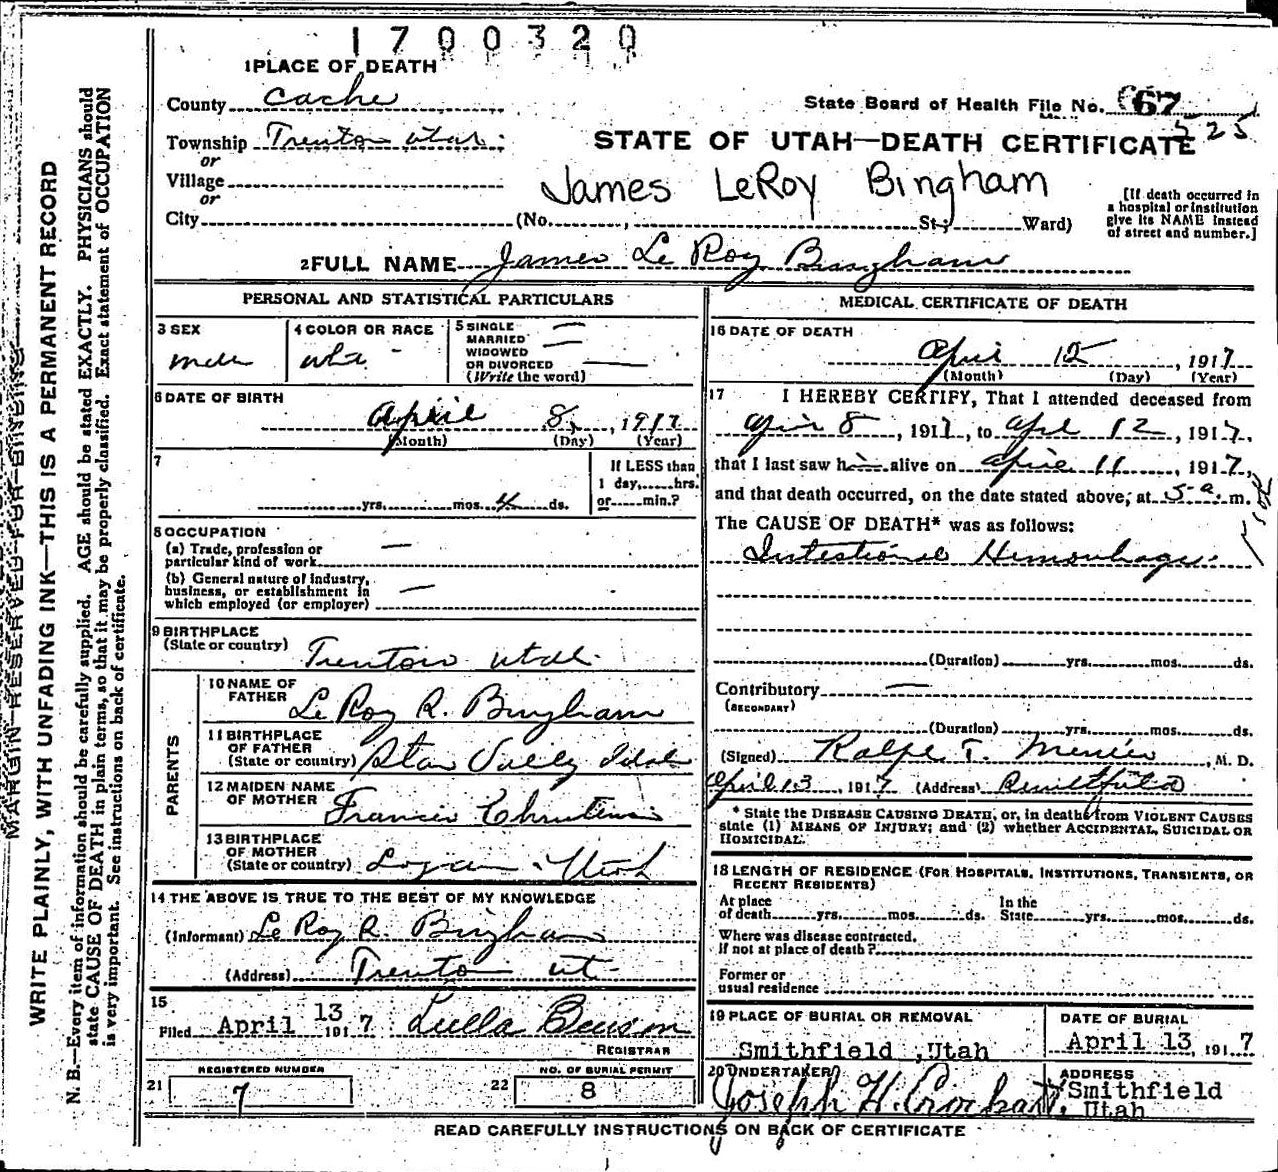 1700320
1 PLACE OF DEATH
County Cache
State Board of Health File No. 67
525
Township Trenton Utah
STATE OF UTAH—DEATH CERTIFICATE
or
Village
or
City
James LeRoy Bingham
(No. , St; Ward)
[If death occurred in
a hospital or institution
give its NAME instead
of street and number.]
2 FULL NAME James Le Roy Bingham
PERSONAL AND STATISTICAL PARTICULARS
3 SEX
male
4 COLOR OR RACE
white
5 SINGLE
MARRIED
WIDOWED
OR DIVORCED
(Write the word)
6 DATE OF BIRTH
April 8, 1917
(Month) (Day) (Year)
7
yrs. mos. 4 ds.
If LESS than
1 day, hrs.
or min.?
8 OCCUPATION
(a) Trade, profession or
particular kind of work
(b) General nature of industry,
business, or establishment in
which employed (or employer)
9 BIRTHPLACE
(State or country)
Trenton Utah
PARENTS
10 NAME OF
FATHER
Le Roy R. Bingham
11 BIRTHPLACE
OF FATHER
(State or country) Star Vally Idah
12 MAIDEN NAME
OF MOTHER
Francis
13 BIRTHPLACE
OF MOTHER
(State or country) Logan Utah
14 THE ABOVE IS TRUE TO THE BEST OF MY KNOWLEDGE
(Informant) Le Roy R. Bingham
(Address) Trenton ut
15
Filed April 13 1917 Luella Benson
REGISTRAR
REGISTERED NUMBER
21 7
NO. OF BURIAL PERMIT
22 8
MEDICAL CERTIFICATE OF DEATH
16 DATE OF DEATH
April 12, 1917
(Month) (Day) (Year)
17 I HEREBY CERTIFY, That I attended deceased from
April 8, 1917, to Apl 12, 1917,
that I last saw him alive on April 11, 1917,
and that death occurred, on the date stated above, at 5 a. m.
The CAUSE OF DEATH* was as follows:
Intestional Hemorrhage
(Duration) yrs. mos. ds.
Contributory
(SECONDARY)
(Duration) yrs. mos. ds.
(Signed) T. , M. D.
April 13, 1917 (Address)
* State the DISEASE CAUSING DEATH, or, in deaths from VIOLENT CAUSES
state (1) MEANS OF INJURY; and (2) whether ACCIDENTAL, SUICIDAL OR
HOMICIDAL.
18 LENGTH OF RESIDENCE (FOR HOSPITALS, INSTITUTIONS, TRANSIENTS, OR
RECENT RESIDENTS)
At place
of death yrs. mos. ds.
In the
State yrs. mos. ds.
Where was disease contracted,
if not at place of death?
Former or
usual residence
19 PLACE OF BURIAL OR REMOVAL
Smithfield ,Utah
DATE OF BURIAL
April 13, 1917
20 UNDERTAKER
Joseph H.
ADDRESS
Smithfield
Utah
READ CAREFULLY INSTRUCTIONS ON BACK OF CERTIFICATE
MARGIN RESERVED FOR BINDING
WRITE PLAINLY, WITH UNFADING INK—THIS IS A PERMANENT RECORD
N. B.—Every item of information should be carefully supplied. AGE should be stated EXACTLY. PHYSICIANS should
state CAUSE OF DEATH in plain terms, so that it may be properly classified. Exact statement of OCCUPATION
is very important. See instructions on back of certificate.